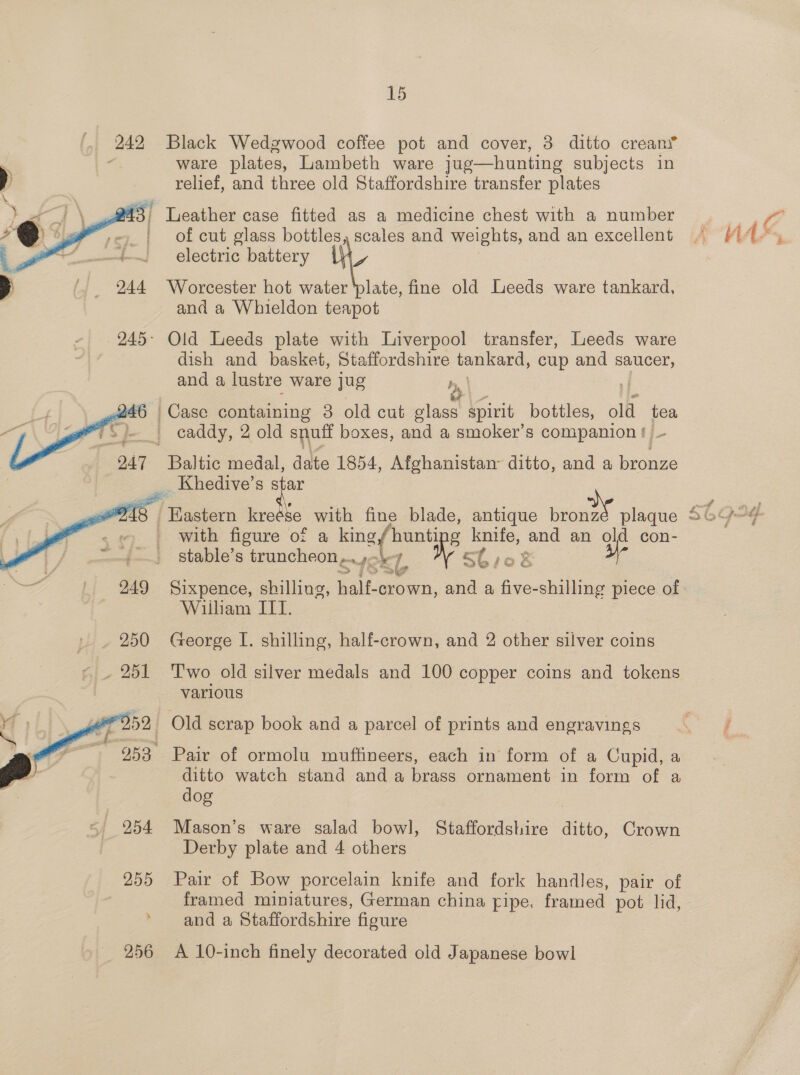 15
242 Black Wedgwood coffee pot and cover, 3 ditto cream
ware plates, Lambeth ware jug—hunting subjects in
relief, and three old Staffordshire transfer plates
243 Leather case fitted as a medicine chest with a number
of cut glass bottles, scales and weights, and an excellent
electric battery
244 Worcester hot water plate, fine old Leeds ware tankard,
and a Whieldon teapot
245 Old Leeds plate with Liverpool transfer, Leeds ware
dish and basket, Staffordshire tankard, cup and saucer,
and a lustre ware jug
246 Case containing 3 old cut glass spirit bottles, old tea
caddy, 2 old snuff boxes, and a smoker's companion
247 Baltic medal, date 1854, Afghanistan ditto, and a bronze
Khedive's star
248 Eastern kreese with fine blade, antique bronze plaque
with figure of a king, hunting knife, and an old con-
stable's truncheon
249 Sixpence, shilling, half-crown, and a five-shilling piece of
William III.
250 George I. shilling, half-crown, and 2 other silver coins
251 Two old silver medals and 100 copper coins and tokens
various
252 Old scrap book and a parcel of prints and engravings
253 Pair of ormolu muffineers, each in form of a Cupid, a
ditto watch stand and a brass ornament in form of a
dog
254 Mason's ware salad bowl, Staffordshire ditto, Crown
Derby plate and 4 others
255 Pair of Bow porcelain knife and fork handles, pair of
framed miniatures, German china pipe, framed pot lid,
and a Staffordshire figure
256 A 10-inch finely decorated old Japanese bowl